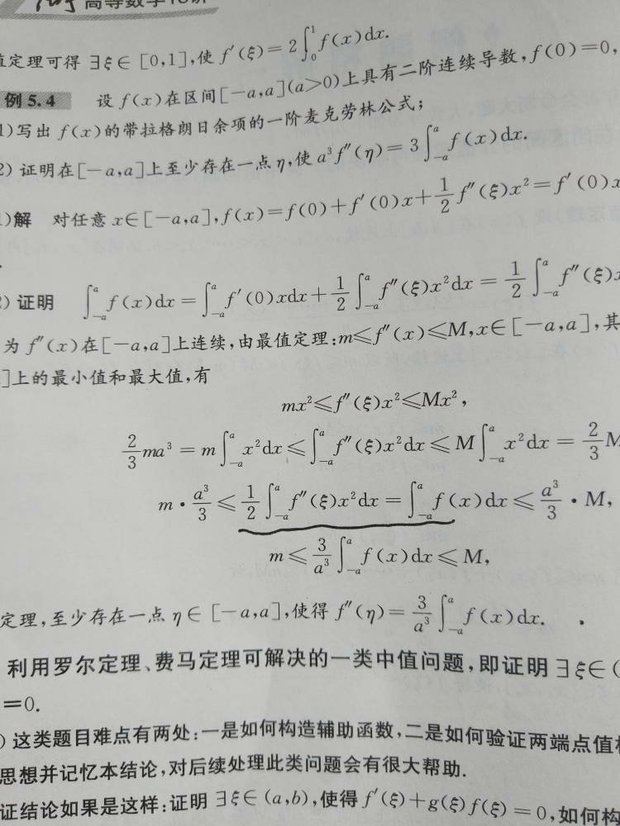 高等数学18讲
值定理可得 ∃ξ∈[0,1],使 f′(ξ)=2∫₀¹f(x)dx.
例5.4 设 f(x)在区间[-a,a](a>0)上具有二阶连续导数,f(0)=0,
1)写出 f(x)的带拉格朗日余项的一阶麦克劳林公式;
2) 证明在[-a,a]上至少存在一点 η,使 a³f″(η)=3∫₋ₐᵃf(x)dx.
)解 对任意 x∈[-a,a],f(x)=f(0)+f′(0)x+1/2f″(ξ)x²=f′(0)x
)证明 ∫₋ₐᵃf(x)dx=∫₋ₐᵃf′(0)xdx+1/2∫₋ₐᵃf″(ξ)x²dx=1/2∫₋ₐᵃf″(ξ)x
为 f″(x)在[-a,a]上连续,由最值定理:m≤f″(x)≤M,x∈[-a,a],其
]上的最小值和最大值,有
mx²≤f″(ξ)x²≤Mx²,
2/3ma³=m∫₋ₐᵃx²dx≤∫₋ₐᵃf″(ξ)x²dx≤M∫₋ₐᵃx²dx=2/3M
m·a³/3≤1/2∫₋ₐᵃf″(ξ)x²dx=∫₋ₐᵃf(x)dx≤a³/3·M,
m≤3/a³∫₋ₐᵃf(x)dx≤M,
定理,至少存在一点 η∈[-a,a],使得 f″(η)=3/a³∫₋ₐᵃf(x)dx.
利用罗尔定理、费马定理可解决的一类中值问题,即证明∃ξ∈(
=0.
)这类题目难点有两处:一是如何构造辅助函数,二是如何验证两端点值
思想并记忆本结论,对后续处理此类问题会有很大帮助.
证结论如果是这样:证明∃ξ∈(a,b),使得 f′(ξ)+g(ξ)f(ξ)=0,如何构